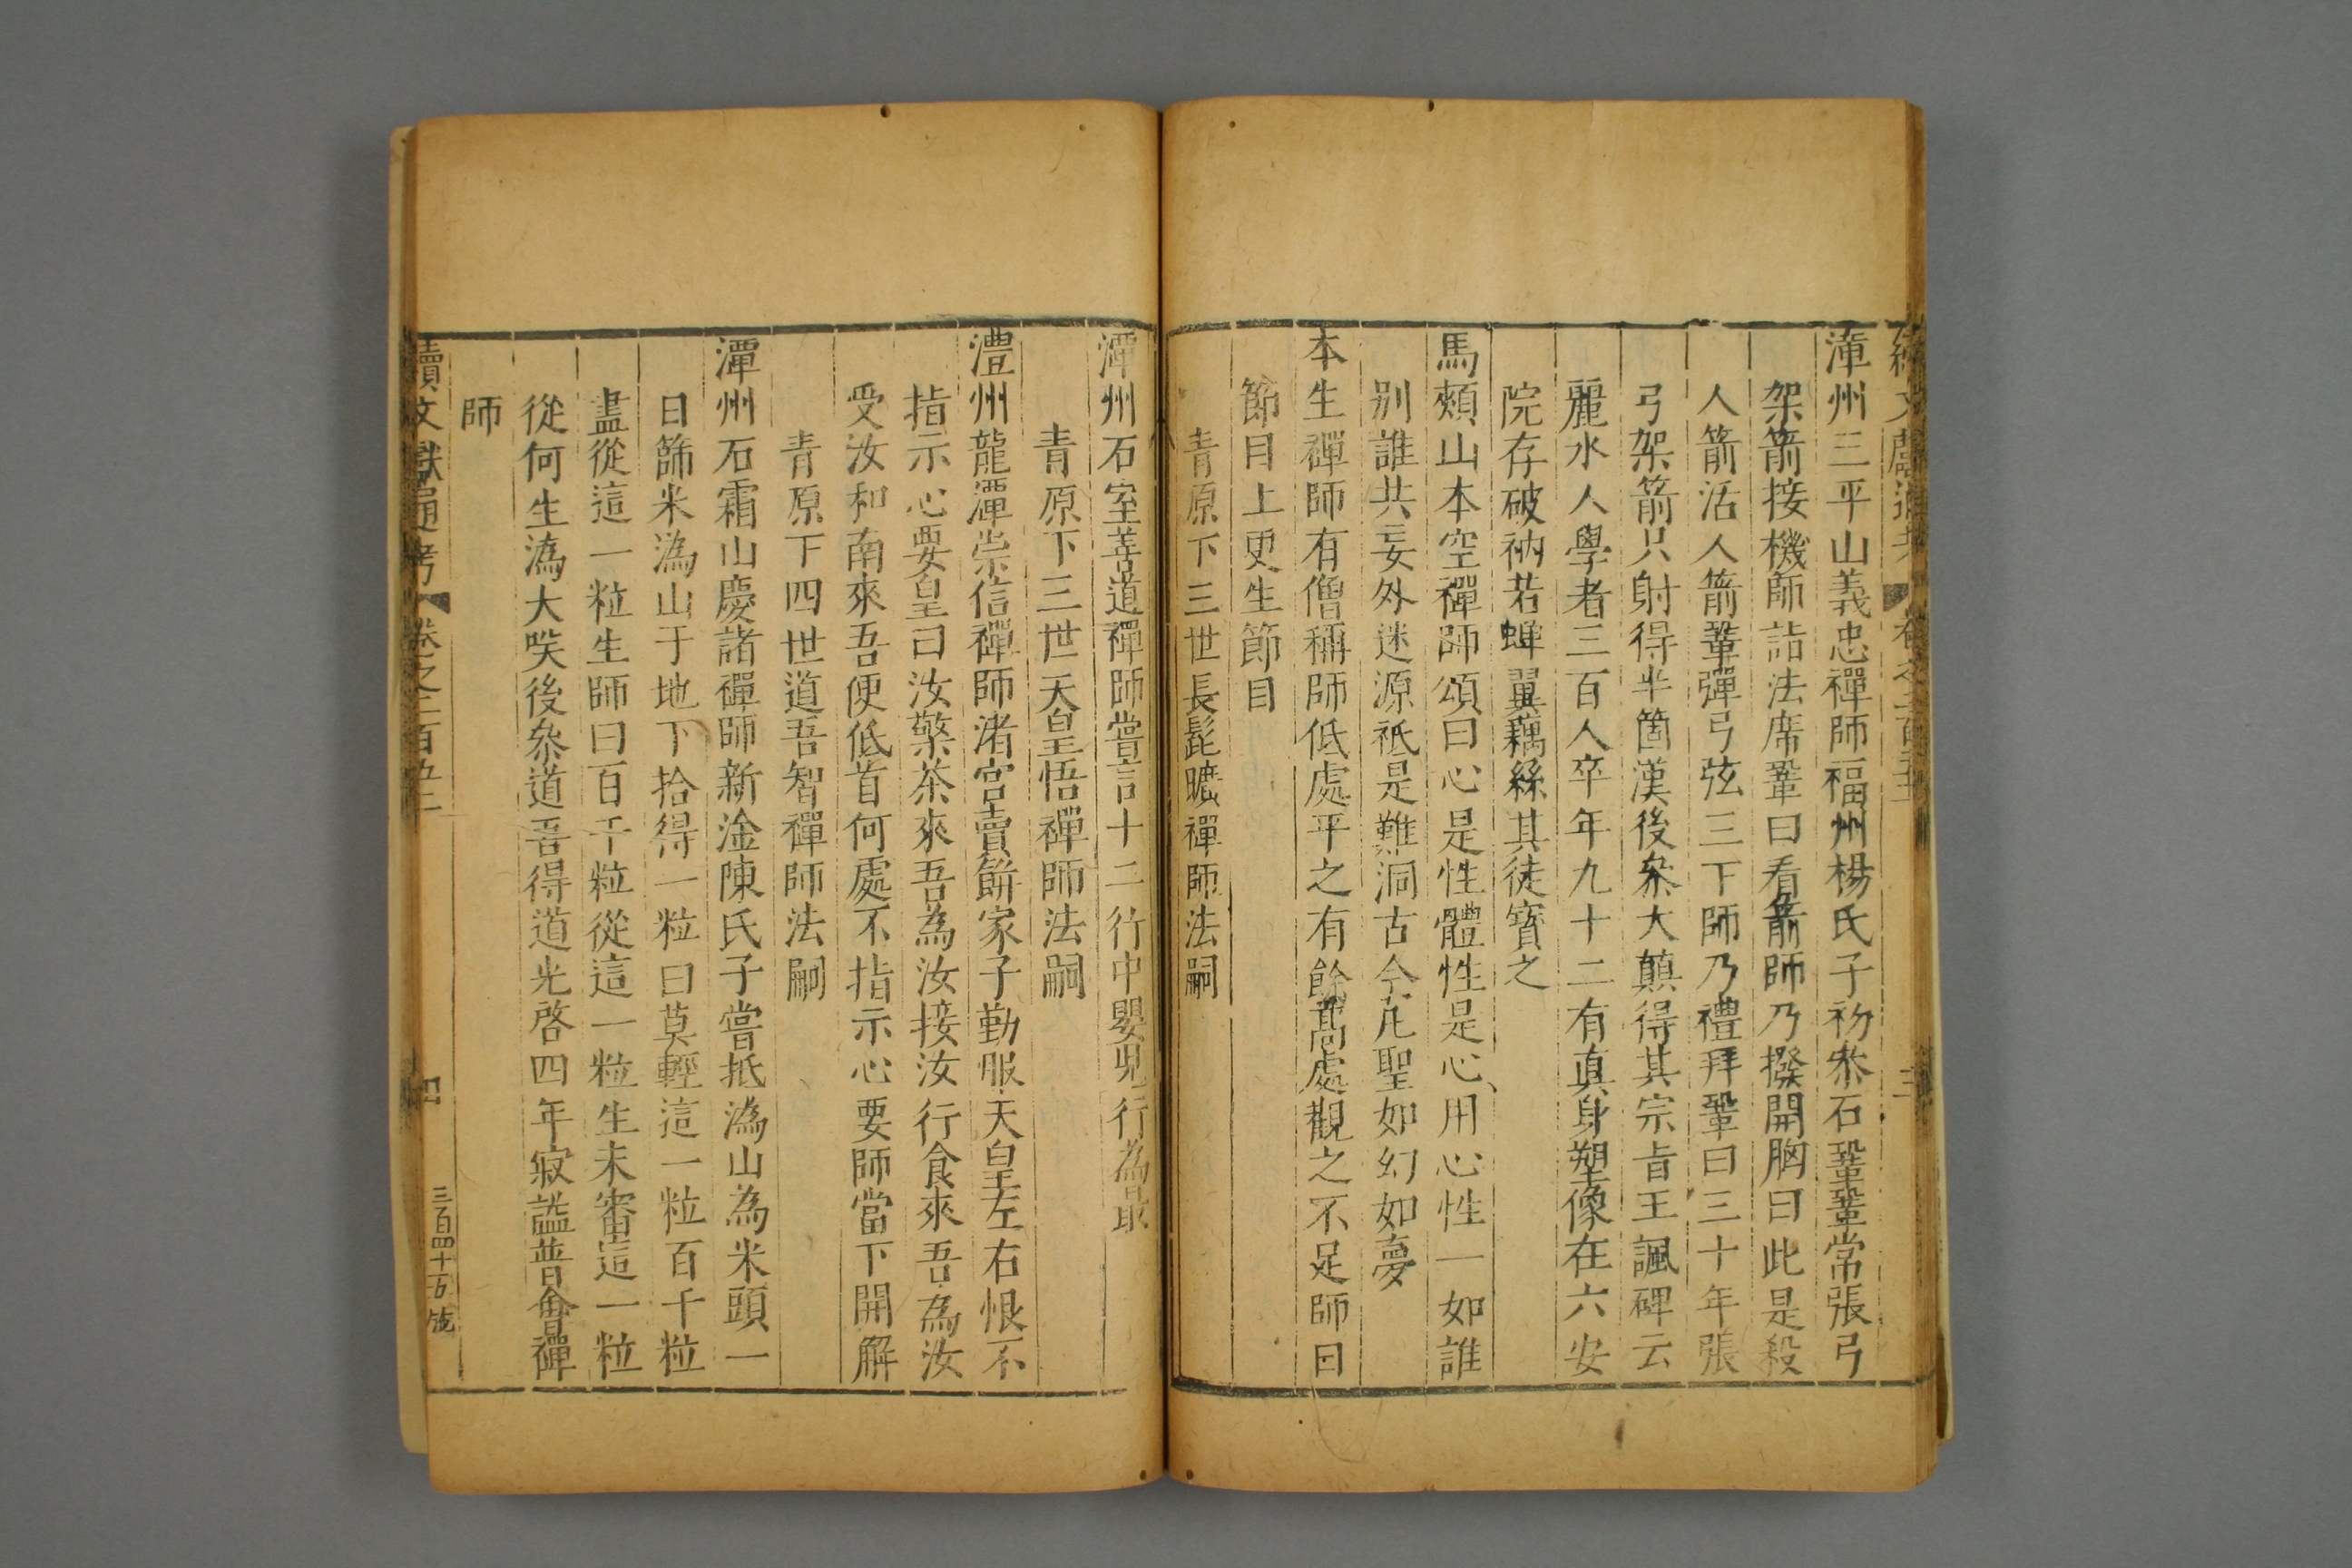 漳州三平山義忠禪師福州楊氏子初叅石鞏鞏常張弓
架箭接機師詣法席鞏曰看箭師乃撥開胸曰此是殺
人箭活人箭鞏彈弓弦三下師乃禮拜鞏曰三十年張
弓架箭只射得半箇漢後叅大顛得其宗旨王諷碑云
麗水人學者三百人卒年九十二有真身塑像在六安
院存破衲若蟬翼藕絲其徒寶之
馬頰山本空禪師頌曰心是性體性是心用心性一如誰
别誰共妄外迷源祗是難洞古今凡聖如幻如夢
本生禪師有僧稱師低處平之有餘高處觀之不足師曰
節目上更生節目
青原下三世長髭曠禪師法嗣
潭州石室善道禪師嘗言十二行中嬰兒行為最
青原下三世天皇悟禪師法嗣
澧州龍潭崇信禪師渚宮賣餅家子勤服天皇左右恨不
指示心要皇曰汝擎茶來吾為汝接汝行食來吾為汝
受汝和南來吾便低首何處不指示心要師當下開解
青原下四世道吾智禪師法嗣
潭州石霜山慶諸禪師新淦陳氏子嘗抵溈山為米頭一
日篩米溈山于地下拾得一粒曰莫輕這一粒百千粒
盡從這一粒生師曰百千粒從這一粒生未審這一粒
從何生溈大咲後叅道吾得道光啓四年寂謚普會禪
師
續文獻通考 卷之二百五十二 四 三百四十五號